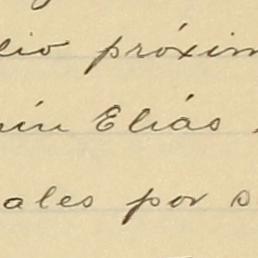 lio próxim
nín Elías
ales por s